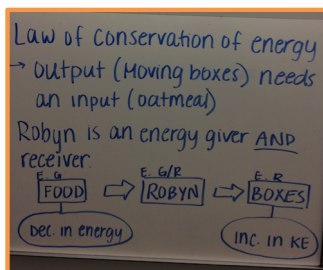 Law of Conservation of energy
→ output (Moving boxes) needs
an input (oatmeal)
Robyn is an energy giver AND
receiver.
E. G E. G/R E. R
FOOD ⇨ ROBYN ⇨ BOXES
Dec. in energy inc. in KE